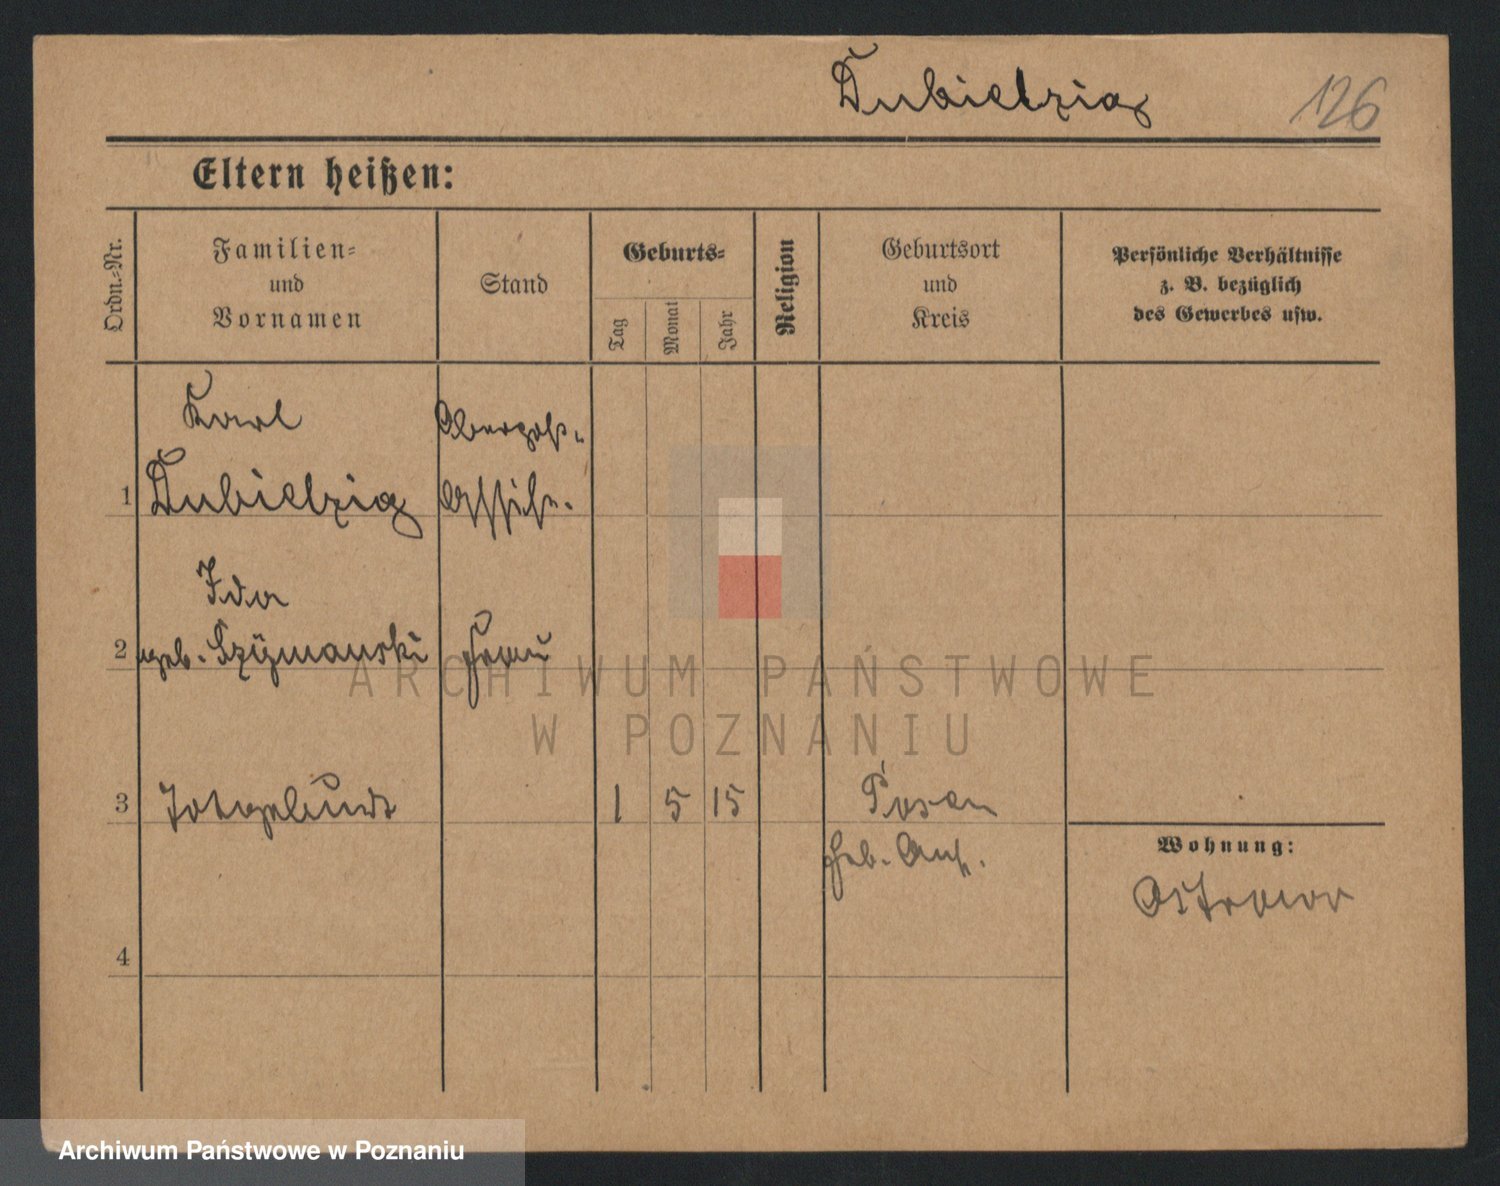 Dubielzig 126
Eltern heißen:
Ordn.-Nr.
Familien-
und
Vornamen
Stand
Geburts-
Tag
Monat
Jahr
Religion
Geburtsort
und
Kreis
Persönliche Verhältnisse
z. B. bezüglich
des Gewerbes usw.
Karl
Oberpost-
1 Dubielzig
Assist.
Ida
2 geb. Szymanski Frau
3 Totgeburt 1 5 15 Posen
Geb. Anst.
Wohnung:
Ostrowo
4
ARCHIWUM PAŃSTWOWE
W POZNANIU
Archiwum Państwowe w Poznaniu